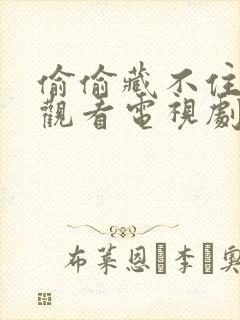 偷偷藏不住
觀看電視劇
布萊恩·李·奧